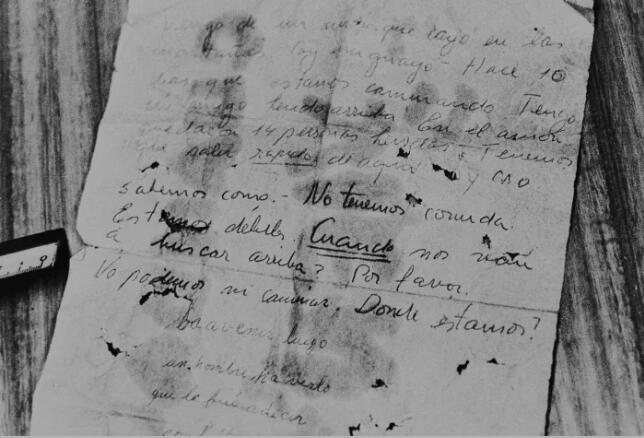 vengo de un avion que cayó en las
montañas. Soy uruguayo - Hace 10
dias que estamos caminando. Tengo
un amigo herido arriba. En el avion
quedaron 14 personas heridas. Tenemos
que salir rapido de aqui y no
sabemos como.- No tenemos comida.
Estamos debiles. Cuando nos van
a buscar arriba? Por favor.
No podemos ni caminar. Donde estamos?
luego
un hombre
que le